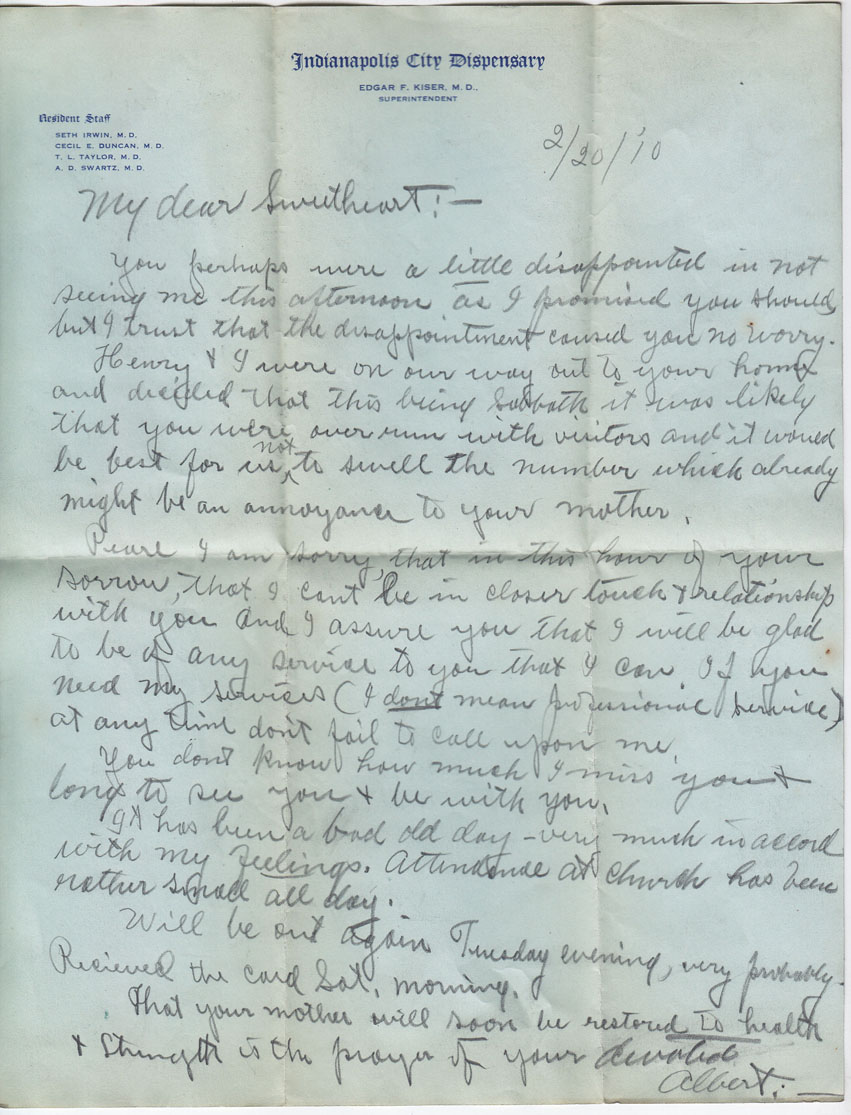 Indianapolis City Dispensary
EDGAR F. KISER, M. D.,
SUPERINTENDENT
Resident Staff
SETH IRWIN, M. D.
CECIL E. DUNCAN, M. D.
T. L. TAYLOR, M. D.
A. D. SWARTZ, M. D.
2/20/'10
My dear Sweetheart:—
You perhaps were a little disappointed in not
seeing me this afternoon as I promised you should,
but I trust that the disappointment caused you no worry.
Henry & I were on our way out to your home
and decided that this being Sabbath it was likely
that you were overrun with visitors and it would
be best for us not to swell the number which already
might be an annoyance to your mother.
Pearl I am sorry, that in this hour of your
sorrow, that I cant be in closer touch & relationship
with you and I assure you that I will be glad
to be of any service to you that I can. If you
need my services (I dont mean professional service)
at any time don't fail to call upon me.
You dont know how much I miss you &
long to see you & be with you.
It has been a bad old day – very much in accord
with my feelings. Attendance at church has been
rather small all day.
Will be out again Tuesday evening, very probably.
Recieved the card Sat. morning.
That your mother will soon be restored to health
& strength is the prayer of your devoted
Albert:—